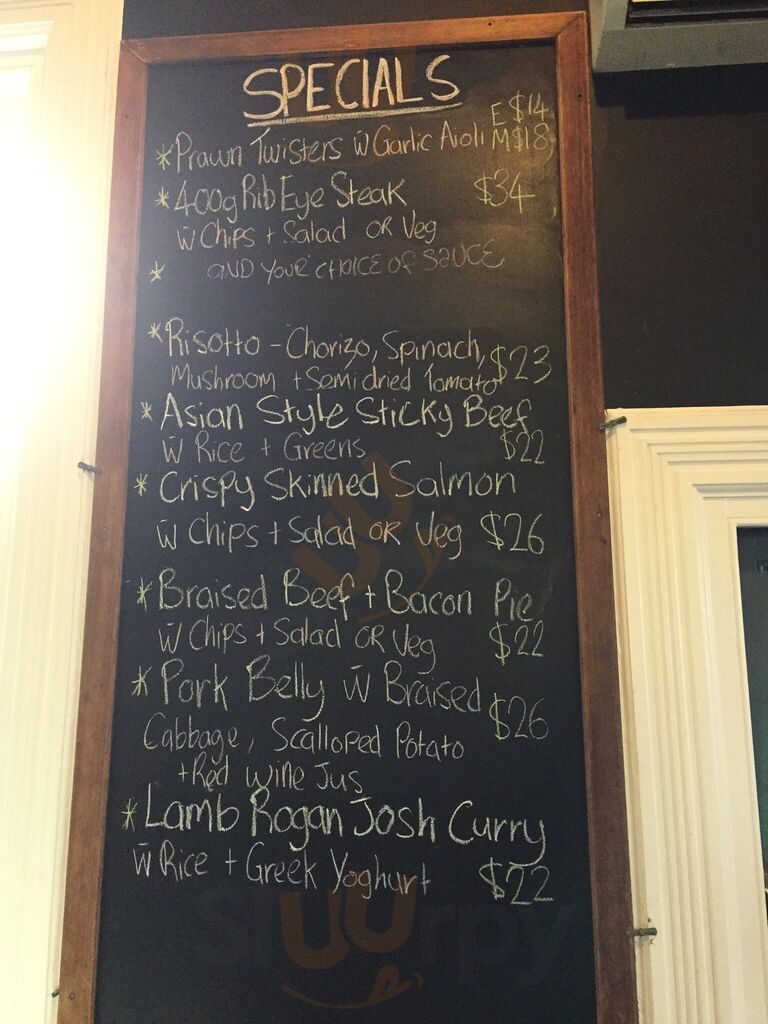 SPECIALS
E $14
*Prawn Twisters w̄ Garlic Aioli M$18
*400g Rib Eye Steak $34
w̄ Chips + Salad OR Veg
* AND YOUR CHOICE OF SAUCE
*Risotto - Chorizo, Spinach,
Mushroom + Semi dried Tomato $23
*Asian Style Sticky Beef
w̄ Rice + Greens $22
*Crispy Skinned Salmon
w̄ Chips + Salad OR Veg $26
*Braised Beef + Bacon Pie
w̄ Chips + Salad OR Veg $22
*Pork Belly w̄ Braised
Cabbage, Scalloped Potato $26
+Red wine Jus
*Lamb Rogan Josh Curry
w̄ Rice + Greek Yoghurt $22
sluurpy